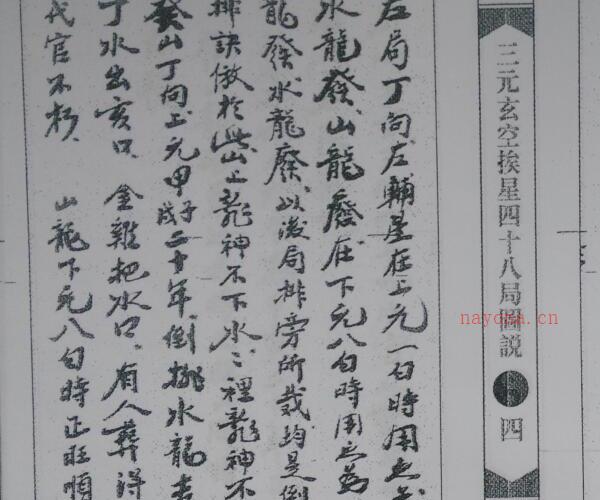 三元玄空挨星四十八局圖説 四
左局丁向左輔星在上元一白時用之為
水龍發山龍廢在下元八白時用之為
龍發水龍廢以後局排旁所載均是倒
排訣倣於此山上龍神不下水水裡龍神不
癸山丁向上元甲子戌二十年倒排水龍
丁水出亥口金雞把水口有人葬得
代官不朽 山龍下元八白時正旺順
nayona.cn